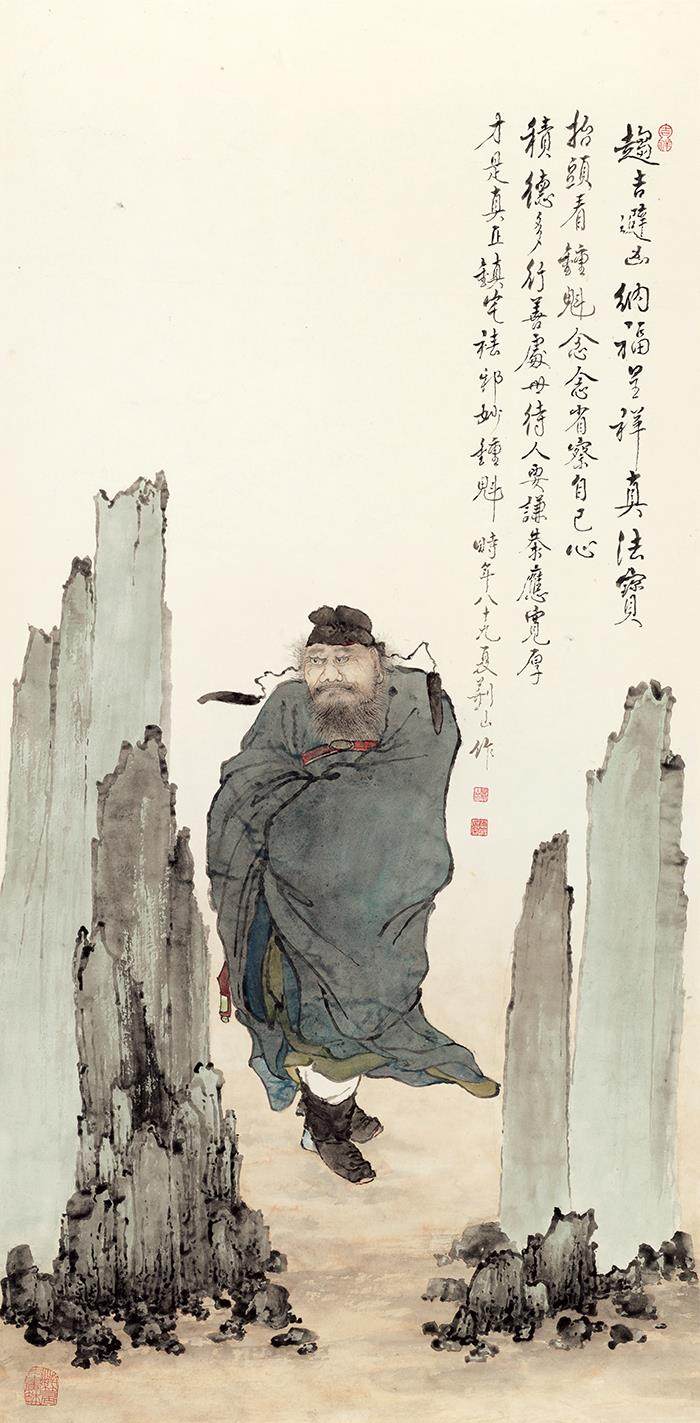 趨吉避凶納福呈祥真法寶
抬頭看鍾魁念念省察自己心
積德多行善處世待人要謙恭應寬厚
才是真正鎮宅祛邪妙鍾魁 時年八十九夏荊山作